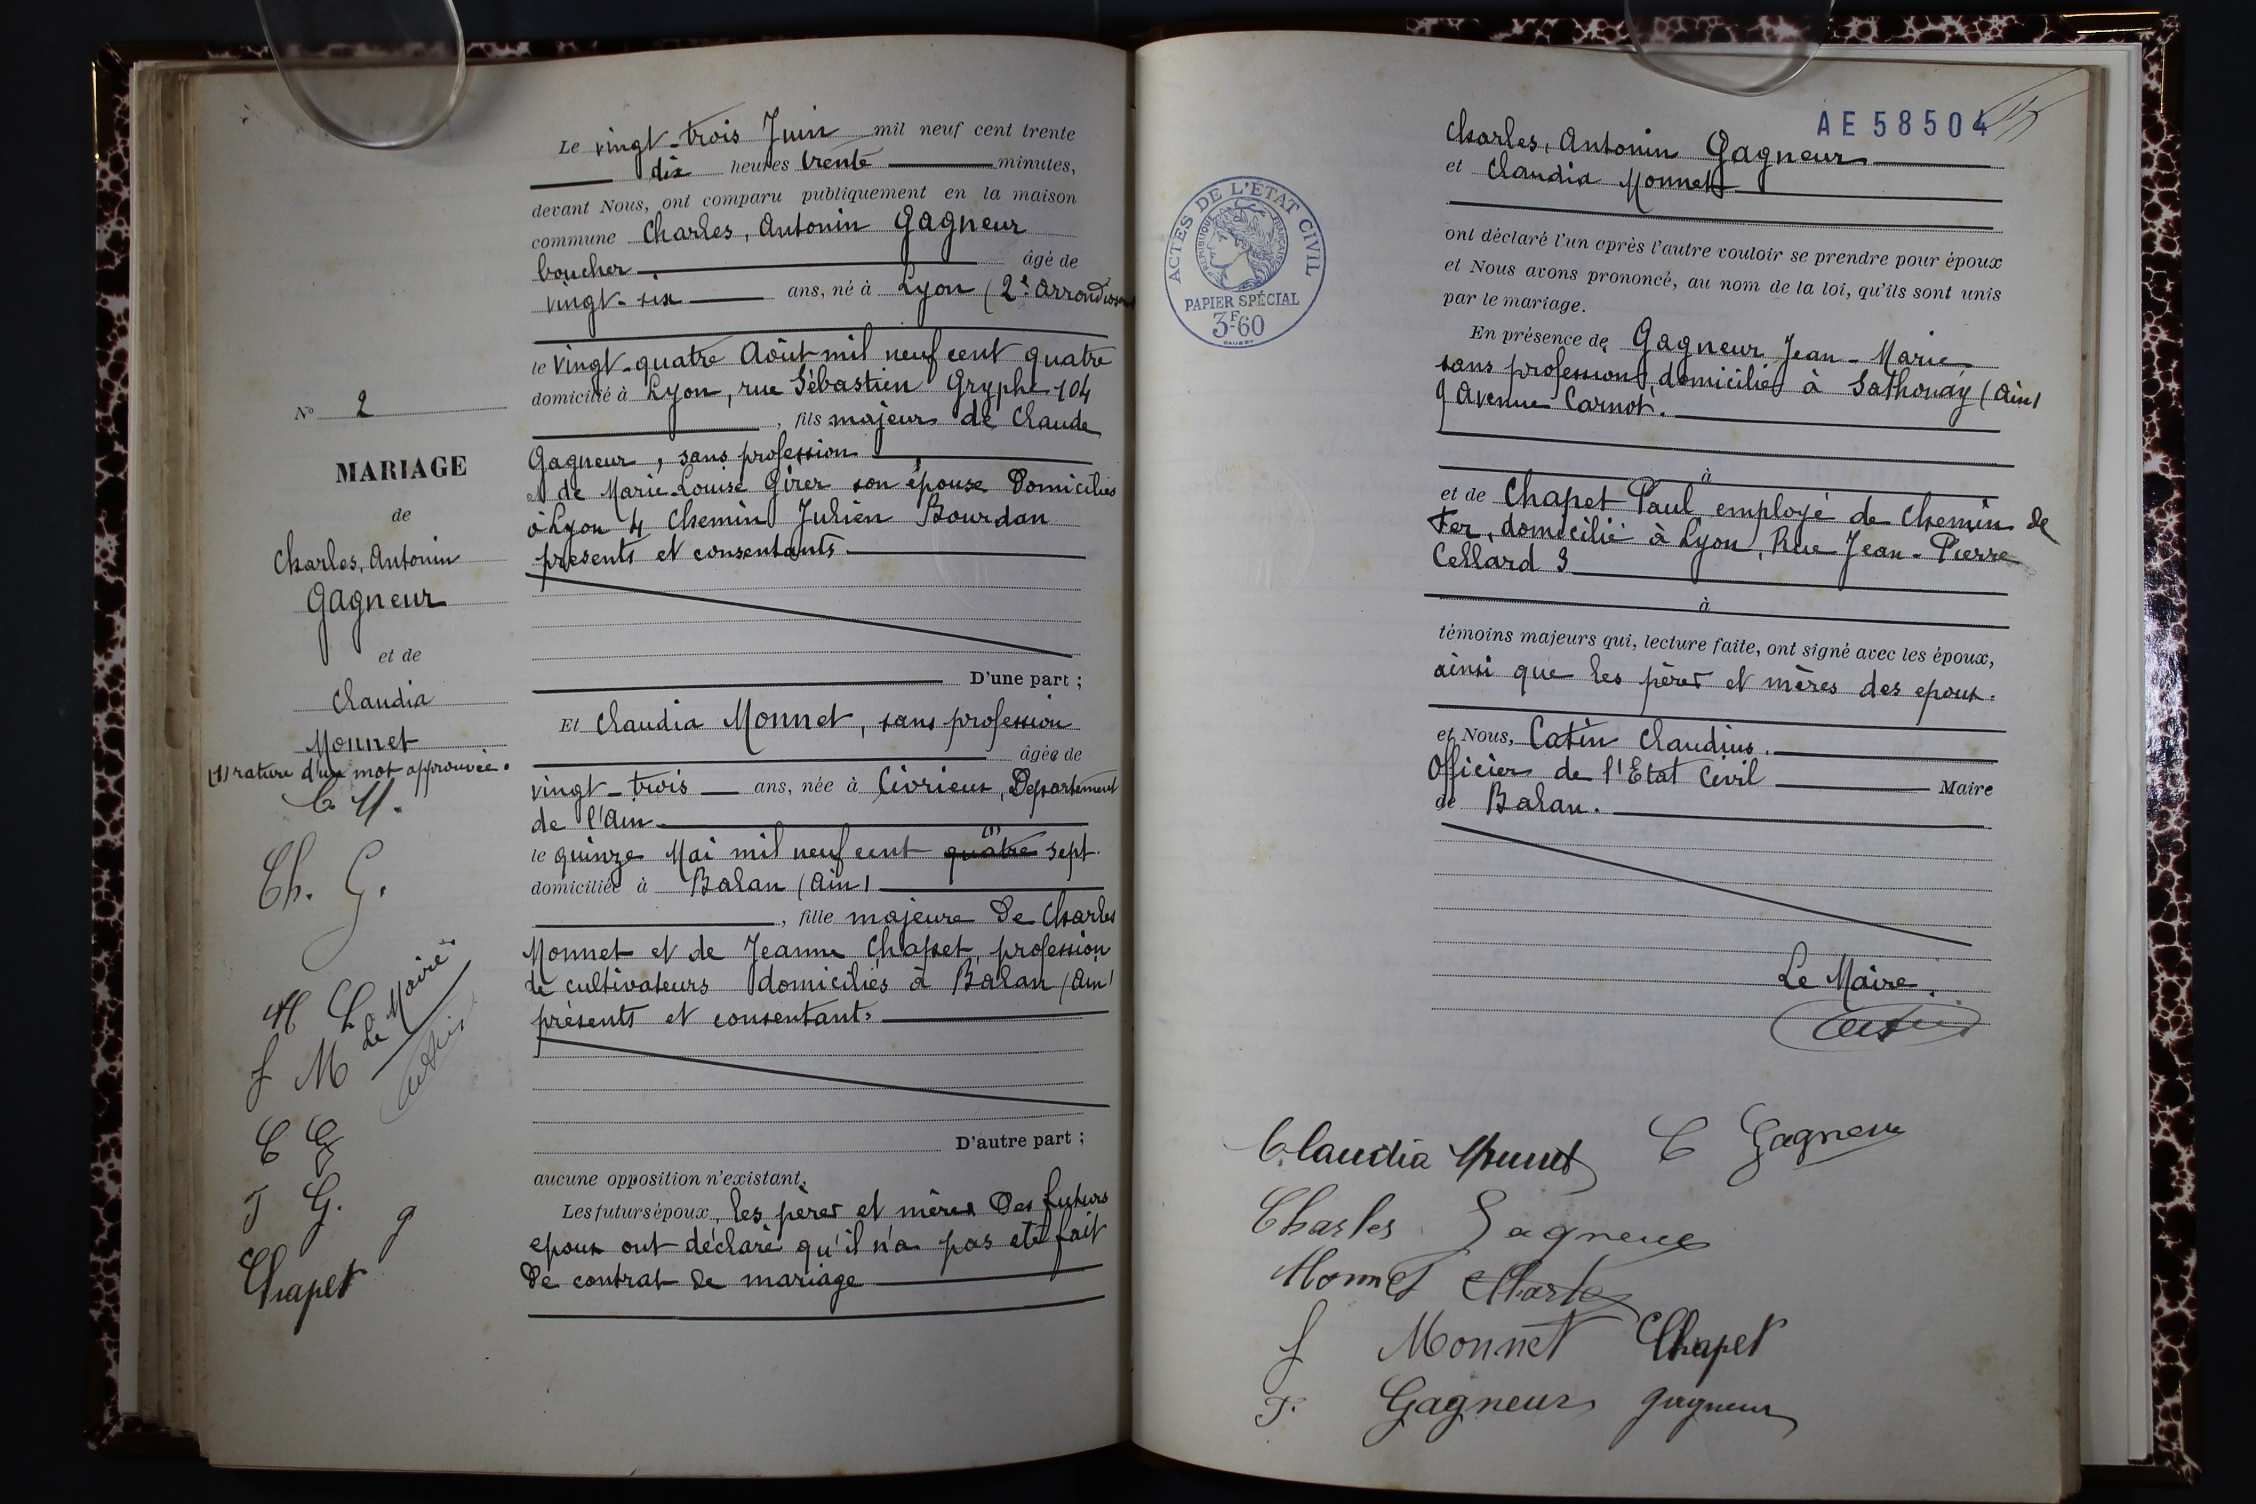 Le vingt-trois Juin mil neuf cent trente
dix heures trente minutes,
devant Nous, ont comparu publiquement en la maison
commune Charles, Antonin Gagneur
boucher âgé de
vingt-six ans, né à Lyon (2e arrondissement
le vingt-quatre Août mil neuf cent quatre
domicilié à Lyon, rue Sébastien Gryphe 104
, fils majeur de Claude
Gagneur, sans profession
et de Marie Louise Girer son épouse Domiciliés
à Lyon 4 Chemin Julien Bourdan
présents et consentants.
D'une part ;
Et Claudia Monnet, sans profession
âgée de
vingt-trois ans, née à Civrieux, Département
de l'Ain
(1)
le quinze Mai mil neuf cent quatre sept
domiciliée à Balan (Ain)
, fille majeure de Charles
Monnet et de Jeanne Chapet, profession
de cultivateurs domiciliés à Balan (Ain)
présents et consentants
D'autre part ;
aucune opposition n'existant,
Les futurs époux, les pères et mères Des futurs
epoux ont déclaré qu'il n'a pas été fait
De contrat de mariage
N° 2
MARIAGE
de
Charles, Antonin
Gagneur
et de
Claudia
Monnet
(1) rature d'un mot approuvée.
C. M.
Ch. G.
M Ch
Le Maire
J M
Catin
C G
J G. g
Chapet
AE 58504
Charles, Antonin Gagneur
et Claudia Monnet
ont déclaré l'un après l'autre vouloir se prendre pour époux
et Nous avons prononcé, au nom de la loi, qu'ils sont unis
par le mariage.
En présence de Gagneur Jean-Marie
sans profession, domicilié à Sathonay (Ain)
9 Avenue Carnot.
à
et de Chapet Paul employé de Chemin de
Fer, domicilié à Lyon, Rue Jean-Pierre
Cellard 3
à
témoins majeurs qui, lecture faite, ont signé avec les époux,
ainsi que les pères et mères des epoux.
et Nous, Catin Claudius.
Officier de l'Etat Civil Maire
de Balan.
Le Maire.
Catin
ACTES DE L'ÉTAT CIVIL
RÉPUBLIQUE FRANÇAISE
PAPIER SPÉCIAL
3F60
Claudia Monnet C Gagneur
Charles Gagneur
Monnet Charles
J Monnet Chapet
J. Gagneur gagneur